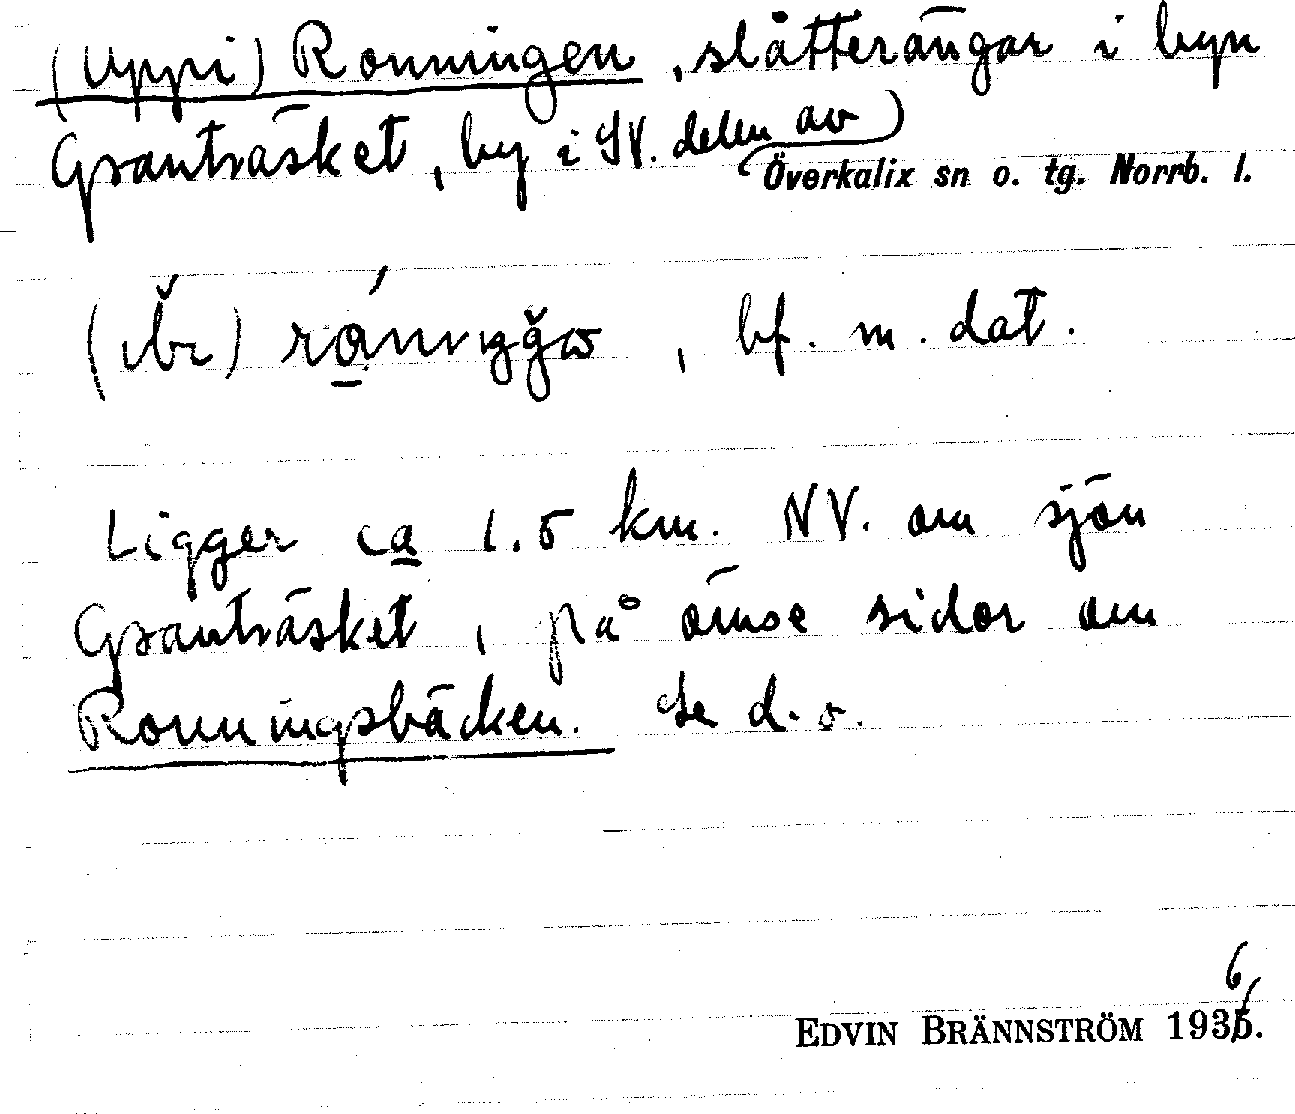 (Uppi) Ronningen, slåtterängar i byn
Granträsket, by i SV. delen av
Överkalix sn o. tg. Norrb. l.
, bf. m. dat.
Ligger ca 1.5 km. NV. om sjön
Granträsket, på ömse sidor om
Ronningsbäcken. Se d.o.
6
EDVIN BRÄNNSTRÖM 1935.